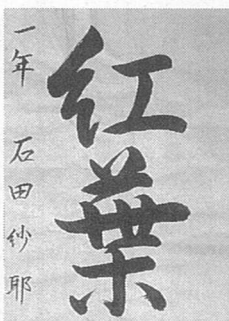 紅葉
一年 石田紗耶